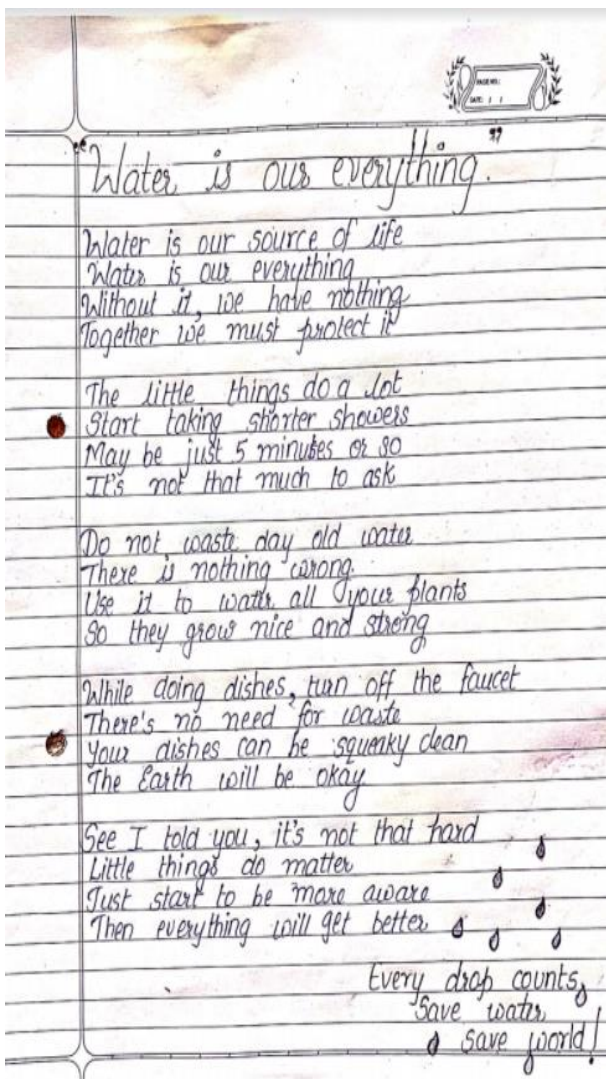 PAGE NO.:
DATE: / /
"Water is our everything."
Water is our source of life
Water is our everything
Without it, we have nothing
Together we must protect it
The little things do a lot
Start taking shorter showers
May be just 5 minutes or so
It's not that much to ask
Do not waste day old water
There is nothing wrong.
Use it to water all your plants
So they grow nice and strong
While doing dishes, turn off the faucet
There's no need for waste
Your dishes can be squeaky clean
The Earth will be okay
See I told you, it's not that hard
Little things do matter
Just start to be more aware
Then everything will get better
Every drop counts,
Save water
Save world!